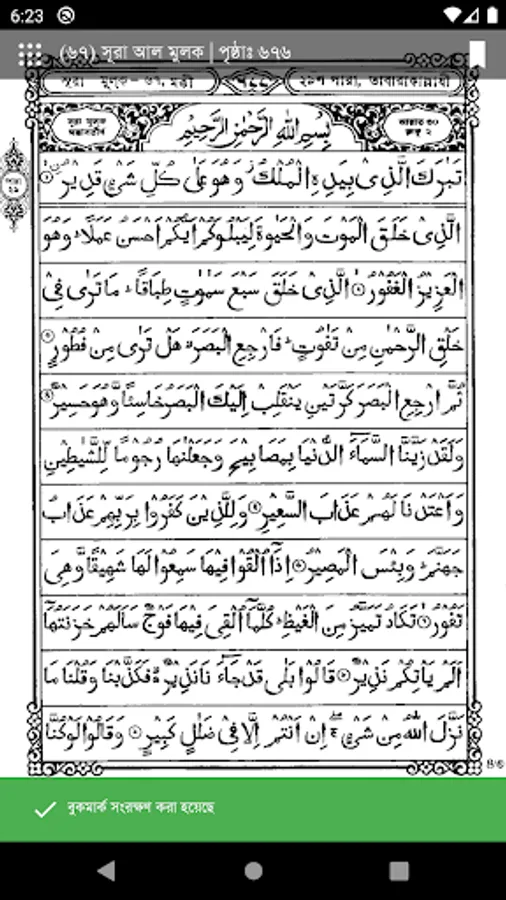 6:23
(৬৭) সূরা আল মুলক | পৃষ্ঠাঃ ৬৭৬
সূরা মূলক–৬৭, মক্কী
২৯শ পারা, তাবারাকাল্লাযী
সূরা মূলক
بِسْمِ اللهِ الرَّحْمٰنِ الرَّحِيْمِ
تَبٰرَكَ الَّذِىْ بِيَدِهِ الْمُلْكُ وَهُوَ عَلٰى كُلِّ شَىْءٍ قَدِيْرُ
الَّذِىْ خَلَقَ الْمَوْتَ وَالْحَيٰوةَ لِيَبْلُوَكُمْ اَيُّكُمْ اَحْسَنُ عَمَلًا وَهُوَ
الْعَزِيْزُ الْغَفُوْرُ الَّذِىْ خَلَقَ سَبْعَ سَمٰوٰتٍ طِبَاقًا مَا تَرٰى فِىْ
خَلْقِ الرَّحْمٰنِ مِنْ تَفٰوُتٍ فَارْجِعِ الْبَصَرَ هَلْ تَرٰى مِنْ فُطُوْرٍ
ثُمَّ ارْجِعِ الْبَصَرَ كَرَّتَيْنِ يَنْقَلِبْ اِلَيْكَ الْبَصَرُ خَاسِئًا وَّهُوَ حَسِيْرٌ
وَلَقَدْ زَيَّنَّا السَّمَآءَ الدُّنْيَا بِمَصَابِيْحَ وَجَعَلْنٰهَا رُجُوْمًا لِّلشَّيٰطِيْنِ
وَاَعْتَدْنَا لَهُمْ عَذَابَ السَّعِيْرِ وَلِلَّذِيْنَ كَفَرُوْا بِرَبِّهِمْ عَذَابُ
جَهَنَّمَ وَبِئْسَ الْمَصِيْرُ اِذَآ اُلْقُوْا فِيْهَا سَمِعُوْا لَهَا شَهِيْقًا وَّهِىَ
تَفُوْرُ تَكَادُ تَمَيَّزُ مِنَ الْغَيْظِ كُلَّمَآ اُلْقِىَ فِيْهَا فَوْجٌ سَاَلَهُمْ خَزَنَتُهَآ
اَلَمْ يَاْتِكُمْ نَذِيْرٌ قَالُوْا بَلٰى قَدْ جَآءَنَا نَذِيْرٌ فَكَذَّبْنَا وَقُلْنَا مَا
نَزَّلَ اللّٰهُ مِنْ شَىْءٍ اِنْ اَنْتُمْ اِلَّا فِىْ ضَلٰلٍ كَبِيْرٍ وَقَالُوْا لَوْ كُنَّا
বুকমার্ক সংরক্ষণ করা হয়েছে